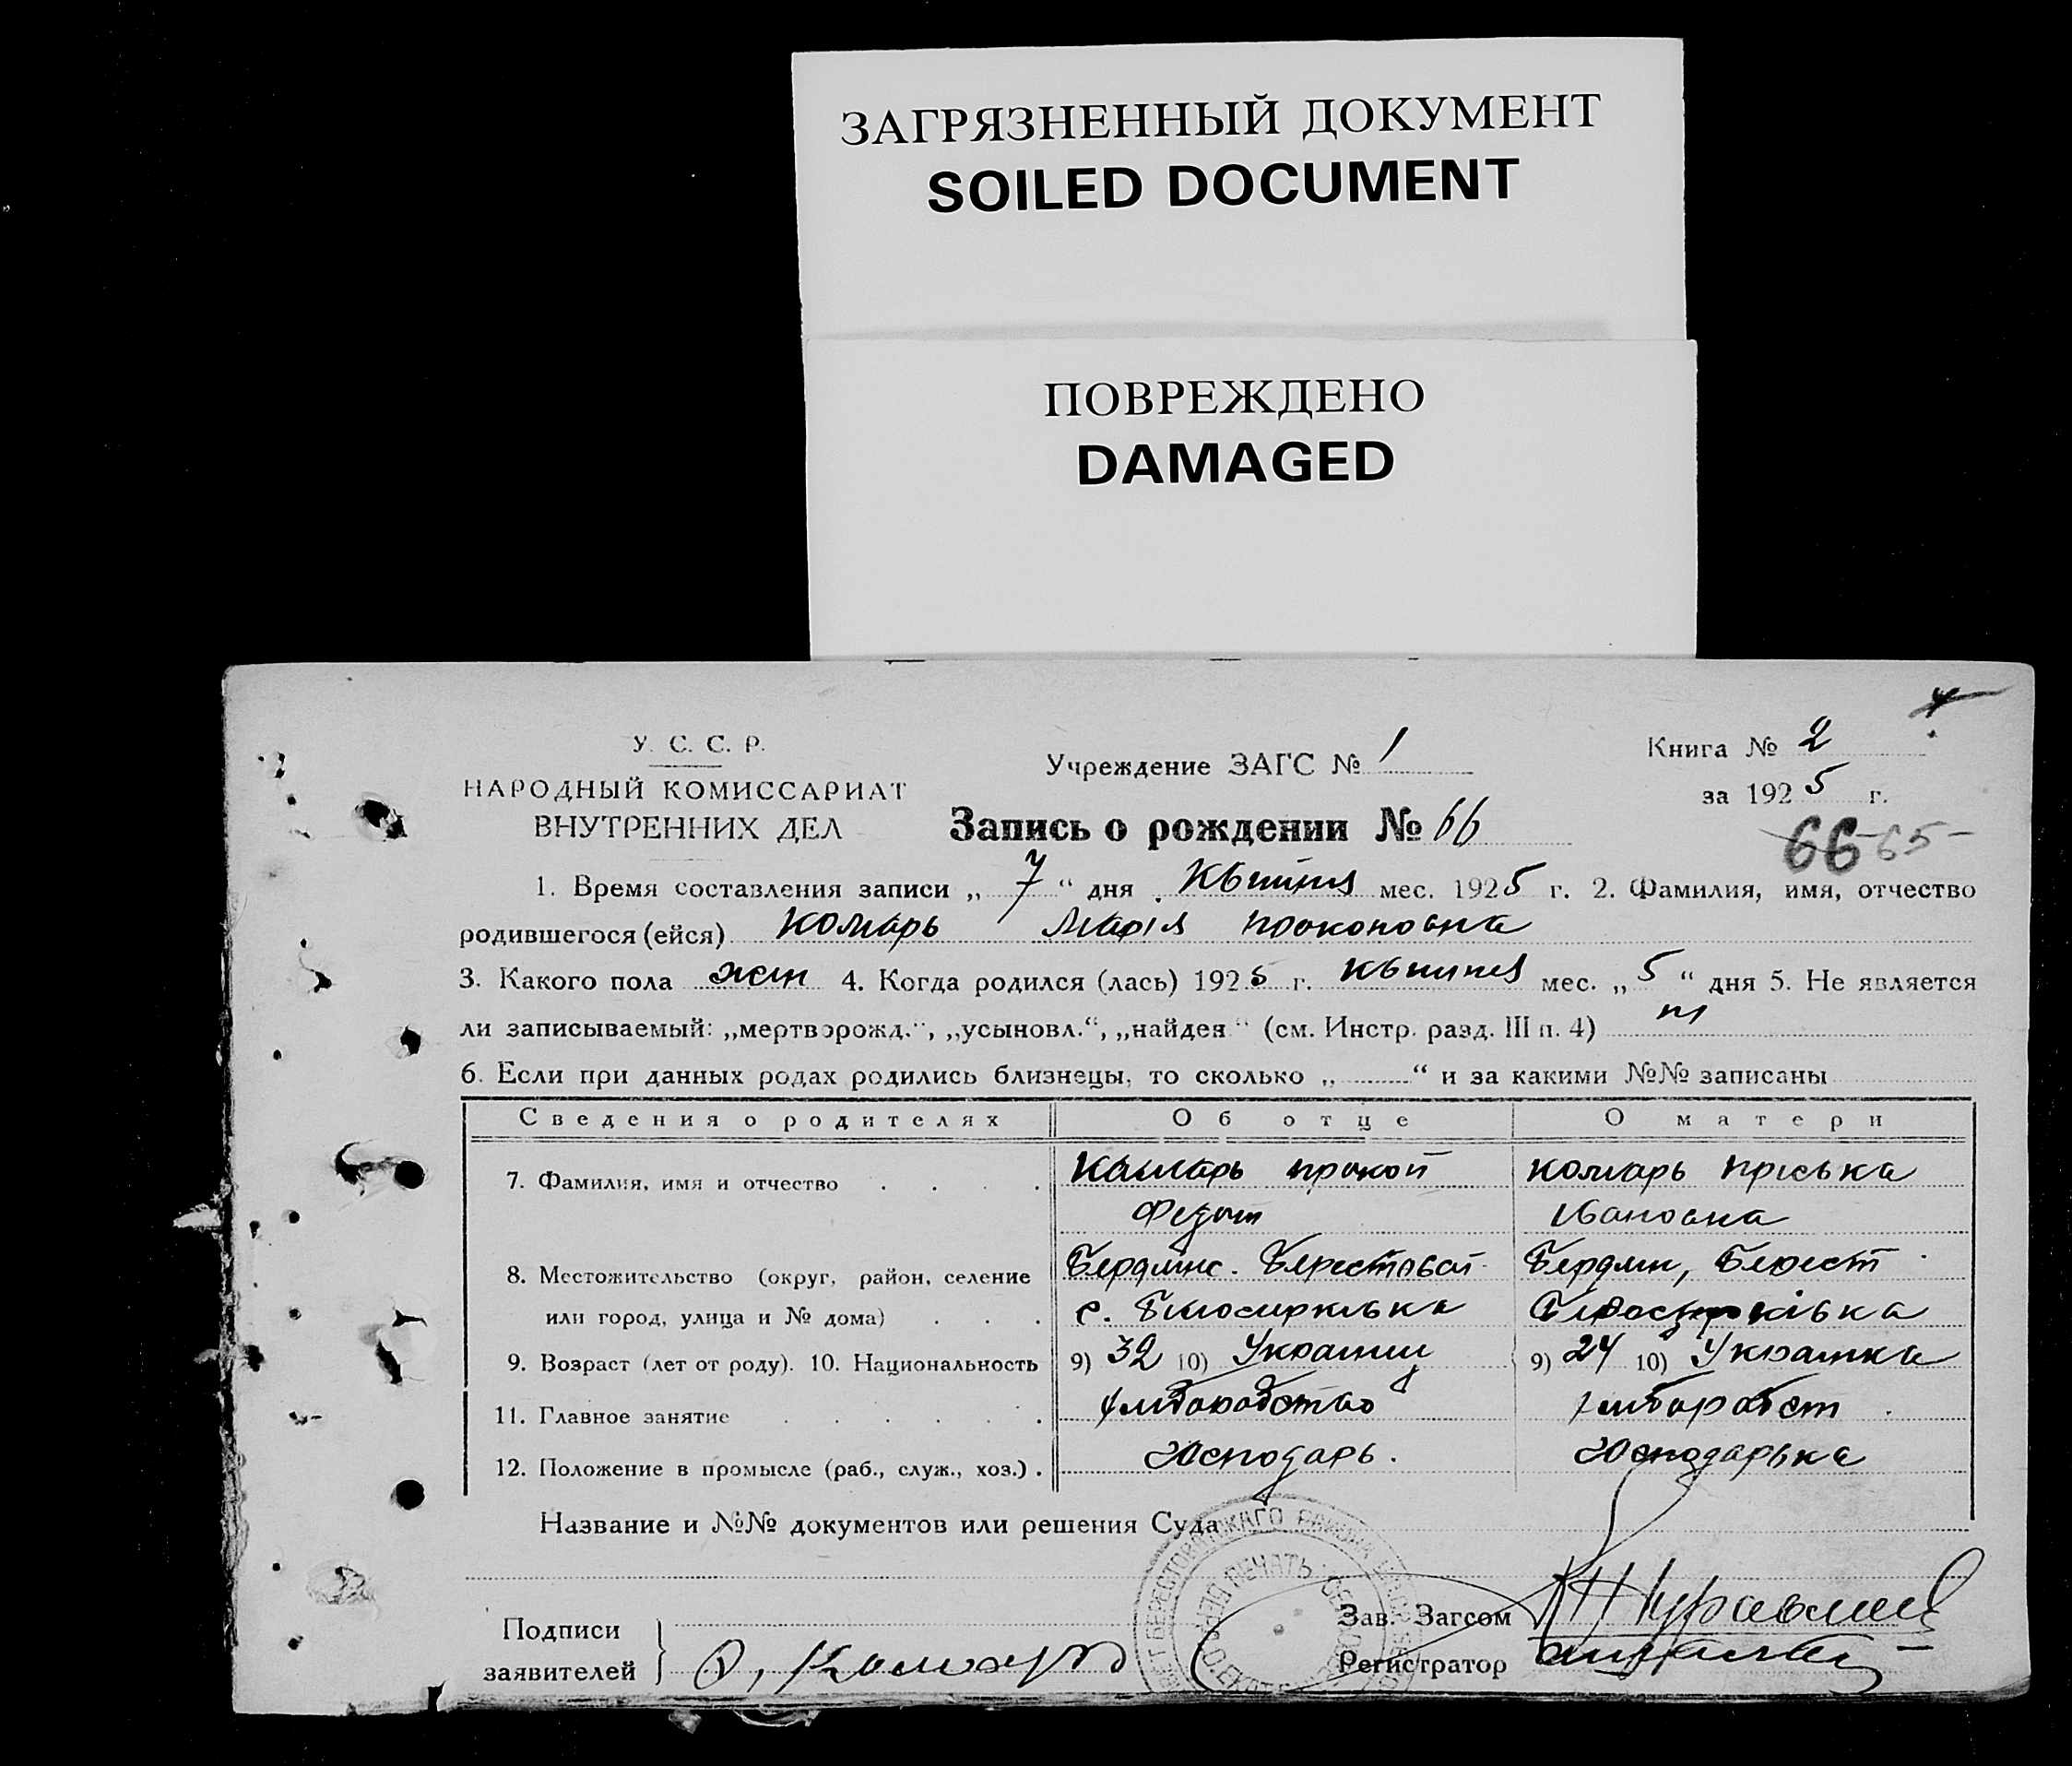 ЗАГРЯЗНЕННЫЙ ДОКУМЕНТ
SOILED DOCUMENT
ПОВРЕЖДЕНО
DAMAGED
У. С. С. Р.
НАРОДНЫЙ КОМИССАРИАТ
ВНУТРЕННИХ ДЕЛ
Учреждение ЗАГС № 1
Книга № 2
за 1925 г.
Запись о рождении № 66
66 65
1. Время составления записи „ 7 “ дня Квітня мес. 1925 г. 2. Фамилия, имя, отчество
родившегося (ейся) Комарь Марія Прокоповна
3. Какого пола жен 4. Когда родился (лась) 1925 г. Квітня мес. „ 5 “ дня 5. Не является
ли записываемый: „мертворожд.“, „усыновл.“, „найден“ (см. Инстр. разд. III п. 4)
6. Если при данных родах родились близнецы, то сколько „ “ и за какими №№ записаны
Сведения о родителях Об отце О матери
7. Фамилия, имя и отчество Комарь Прокоп Комарь Пріська
Івановна
8. Местожительство (округ, район, селение Бердянс. Берестовой Бердян, Берест
или город, улица и № дома) с.
9. Возраст (лет от роду). 10. Национальность 9) 32 10) Украинец 9) 24 10) Украинка
11. Главное занятие
12. Положение в промысле (раб., служ., хоз.) Господарь. Господарька
Название и №№ документов или решения Суда
Подписи
заявителей
Комарь
Зав. Загсом
Регистратор